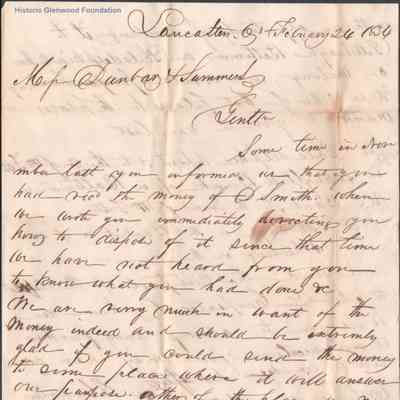 Historic Glenwood Foundation
Lancaster, O, February 26 1836
Mess Dunbar & Summers
Gentln
Some time in Nov
mber last you informed us that you
had recd the money of D Smith. when
we wrote you immediately directing you
how to dispose of it since that time
we have not heard from you
to know what you had done &c
We are verry much in want of the
Money indeed and should be extremly
glad if you would send the money
to some place where it will answer
our purpose. either of the places